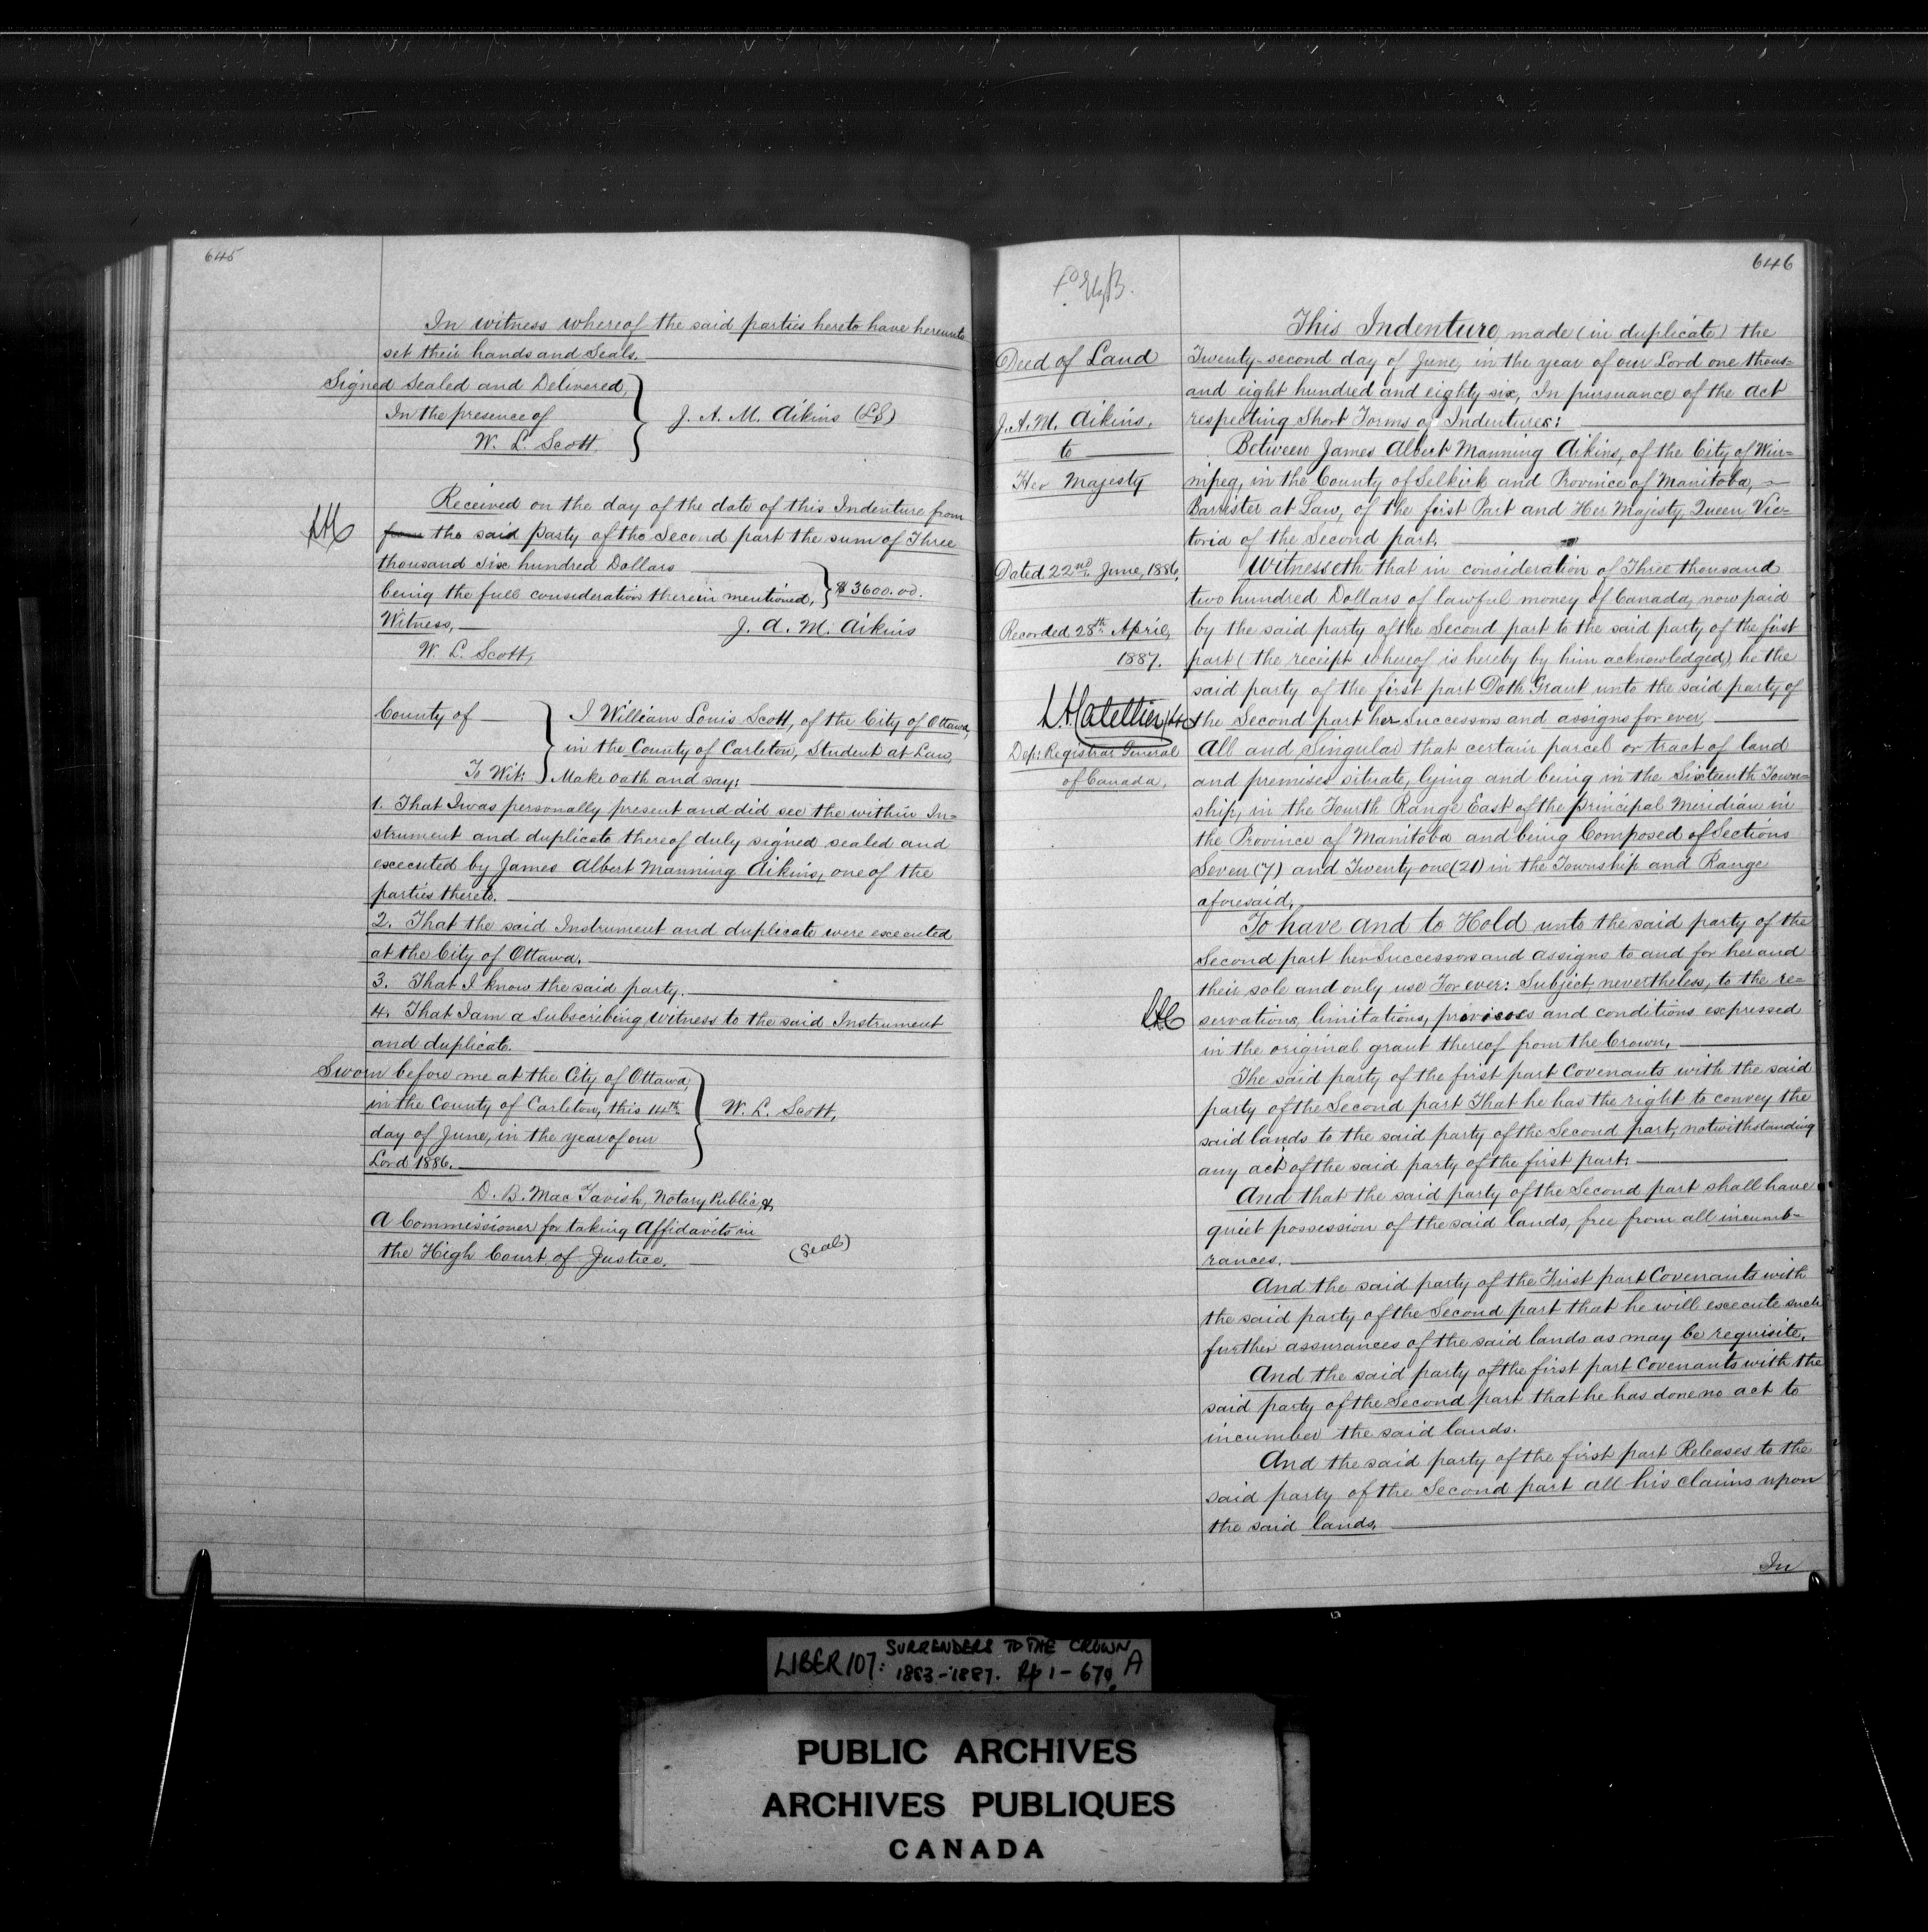 645
In witness whereof the said parties hereto have hereunto
set their hands and Seals.
Signed Sealed and Delivered,
In the presence of
W. L. Scott
J. A. M. Aikins (LS)
Received on the day of the date of this Indenture from
from the said party of the Second part the sum of Three
thousand six hundred Dollars
being the full consideration therein mentioned, $3600.00.
Witness,
J. A. M. Aikins
W. L. Scott,
County of
To Wit:
I William Louis Scott, of the City of Ottawa,
in the County of Carleton, Student at Law,
Make Oath and say:
1. That I was personally present and did see the within In=
strument and duplicate thereof duly signed sealed and
executed by James Albert Manning Aikins, one of the
parties thereto.
2. That the said Instrument and duplicate were executed
at the City of Ottawa.
3. That I know the said party.
4. That I am a Subscribing Witness to the said Instrument
and duplicate.
Sworn before me at the City of Ottawa,
in the County of Carleton, this 14th
day of June, in the year of our
Lord 1886.
W. L. Scott,
D. B. MacTavish, Notary Public, &
A Commissioner for taking Affidavits in
the High Court of Justice.
(Seal)
646
Deed of Land
J. A. M. Aikins,
to
Her Majesty
Dated 22nd June, 1886.
Recorded 28th April,
1887.
Dep: Registrar General
of Canada.
This Indenture made (in duplicate) the
Twenty-second day of June, in the year of our Lord one thous=
and eight hundred and eighty six, In pursuance of the Act
respecting Short Forms of Indentures:
Between James Albert Manning Aikins, of the City of Win=
nipeg, in the County of Selkirk and Province of Manitoba,
Barrister at Law, of the first Part and Her Majesty, Queen Vic=
toria of the Second part.
Witnesseth that in consideration of Three thousand
two hundred Dollars of lawful money of Canada, now paid
by the said party of the Second part to the said party of the first
part (the receipt whereof is hereby by him acknowledged), he the
said party of the first part Doth Grant unto the said party of
the Second part her Successors and assigns for ever,
All and Singular that certain parcel or tract of land
and premises situate, lying and being in the Sixteenth Town=
ship, in the Fourth Range East of the principal Meridian in
the Province of Manitoba and being Composed of Sections
Seven (7) and Twenty-one (21) in the Township and Range
aforesaid.
To have and to Hold unto the said party of the
Second part her Successors and assigns to and for her and
their sole and only use For ever: Subject nevertheless, to the re=
servations, limitations, provisoes and conditions expressed
in the original grant thereof from the Crown.
The said party of the first part Covenants with the said
party of the Second part That he has the right to convey the
said lands to the said party of the Second part, notwithstanding
any act of the said party of the first part.
And that the said party of the Second part shall have
quiet possession of the said lands, free from all incumb=
rances.
And the said party of the First part Covenants with
the said party of the Second part that he will execute such
further assurances of the said lands as may be requisite.
And the said party of the first part Covenants with the
said party of the Second part that he has done no act to
incumber the said lands.
And the said party of the first part Releases to the
said party of the Second part all his claims upon
the said lands.
In
LIBER 107: SURRENDERS TO THE CROWN
1883-1887. Pp 1-670. A
PUBLIC ARCHIVES
ARCHIVES PUBLIQUES
CANADA